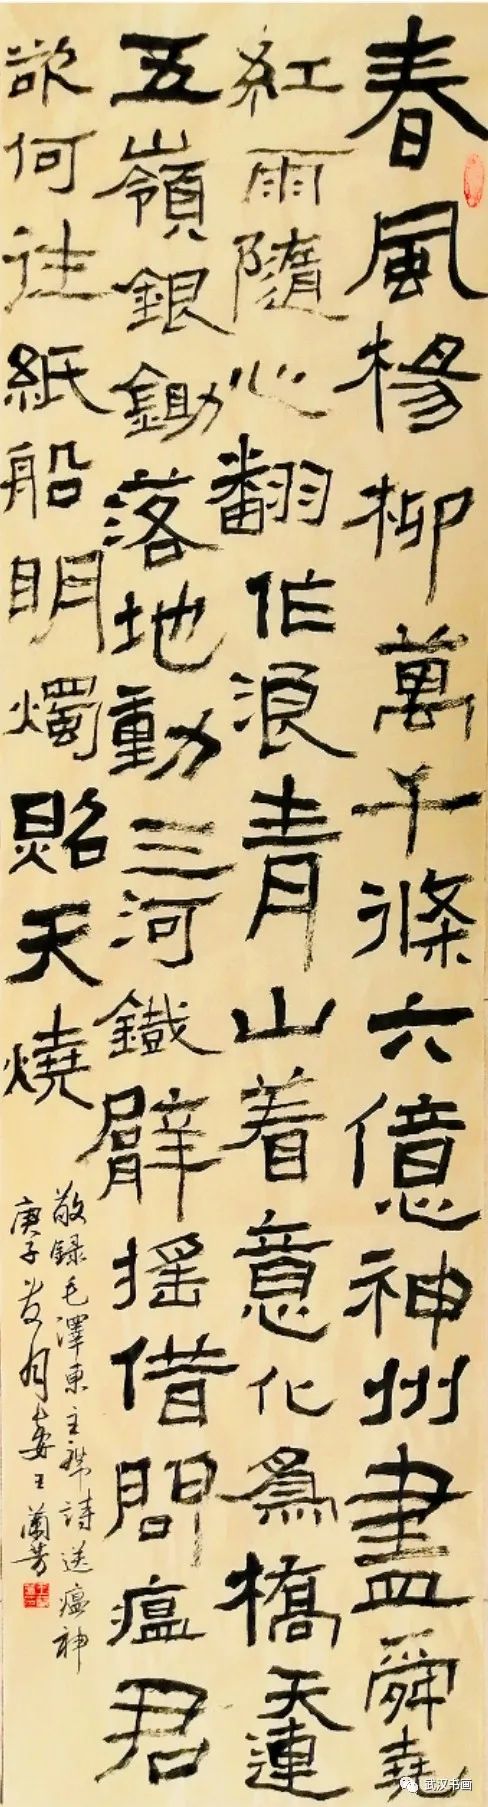 春風楊柳萬千條六億神州盡舜堯
紅雨隨心翻作浪青山着意化為橋天連
五嶺銀鋤落地動三河鐵臂搖借問瘟君
欲何往紙船明燭照天燒
敬錄毛澤東主席詩送瘟神
庚子月王蘭芳
武汉书画